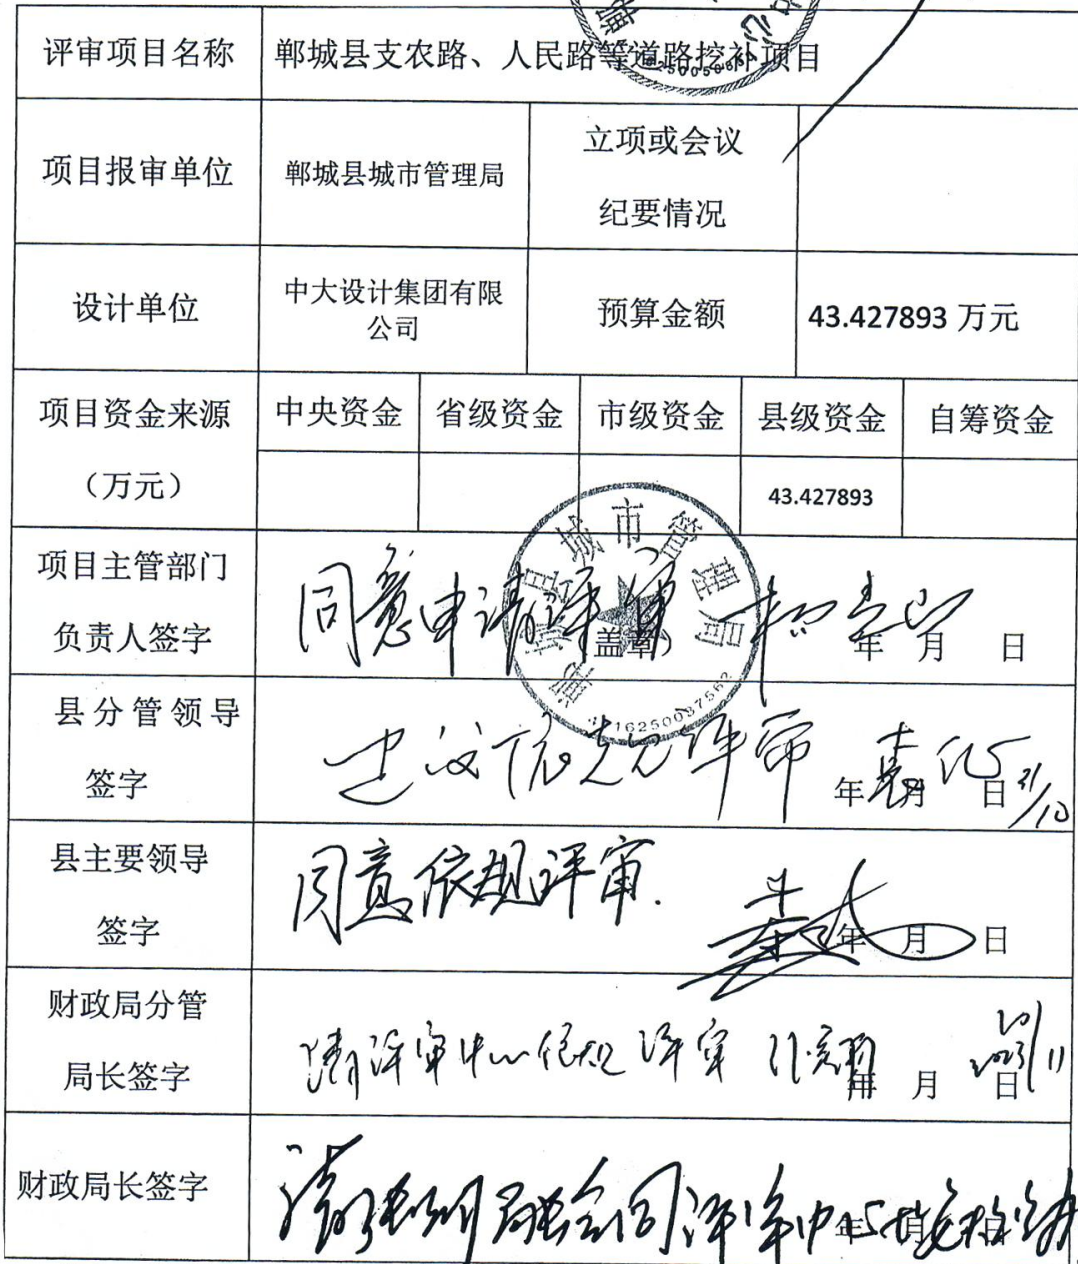 评审项目名称 郸城县支农路、人民路等道路挖补项目
项目报审单位 郸城县城市管理局 立项或会议
纪要情况
设计单位 中大设计集团有限
公司 预算金额 43.427893 万元
项目资金来源
（万元） 中央资金 省级资金 市级资金 县级资金 自筹资金
43.427893
项目主管部门
负责人签字 同意申请评审
盖章） 年 月 日
城市管理局
县分管领导
签字 年 月 日 21/10
县主要领导
签字 同意依规评审.
年 月 日
财政局分管
局长签字 请评审中心依规评审
年 月 日
财政局长签字
年 月 日